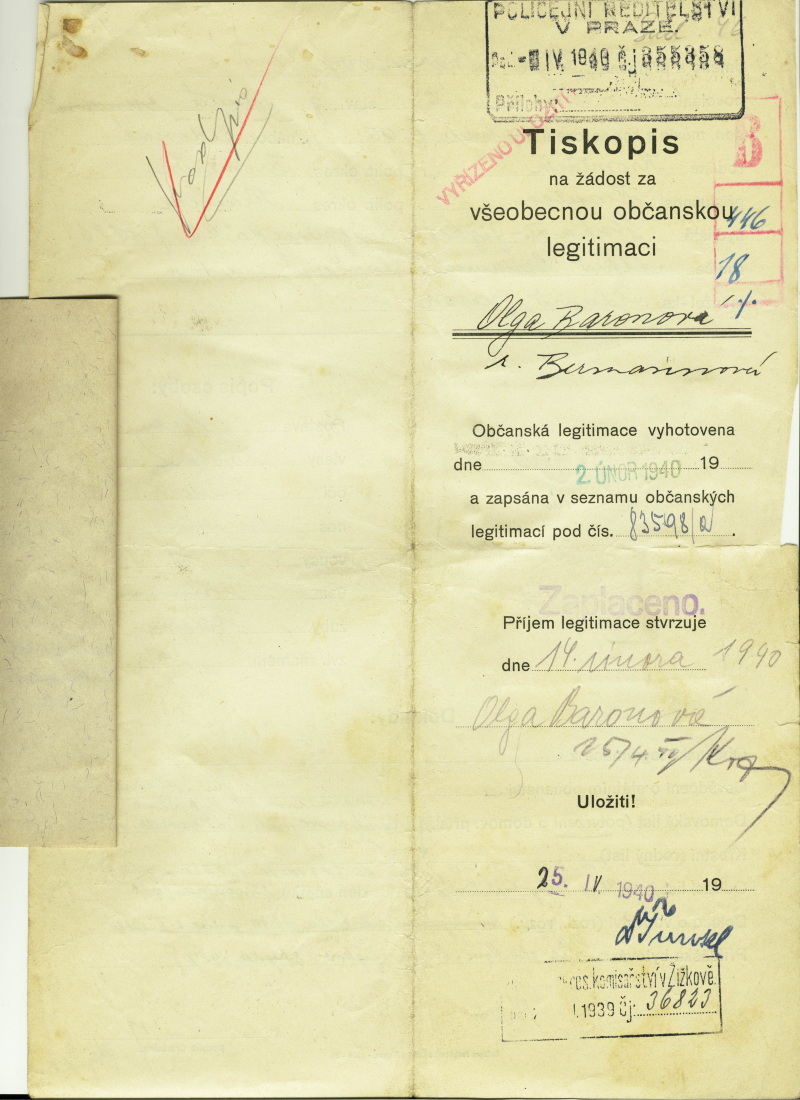 POLICEJNÍ ŘEDITELSTVÍ
V PRAZE.
IV 1940 čj. 355358
Přílohy:
VYŘÍZENO ULOŽITI
B
446
18
Tiskopis
na žádost za
všeobecnou občanskou
legitimaci
Olga Baronova
r. Bermannová
Občanská legitimace vyhotovena
dne 2. ÚNOR 1940 19
a zapsána v seznamu občanských
legitimací pod čís. 83598/a.
Zaplaceno.
Příjem legitimace stvrzuje
dne 14. února 1940
Olga Baronová
25/4.
Uložiti!
25. IV 1940 19
komisařství v Žižkově.
1939 čj. 36823